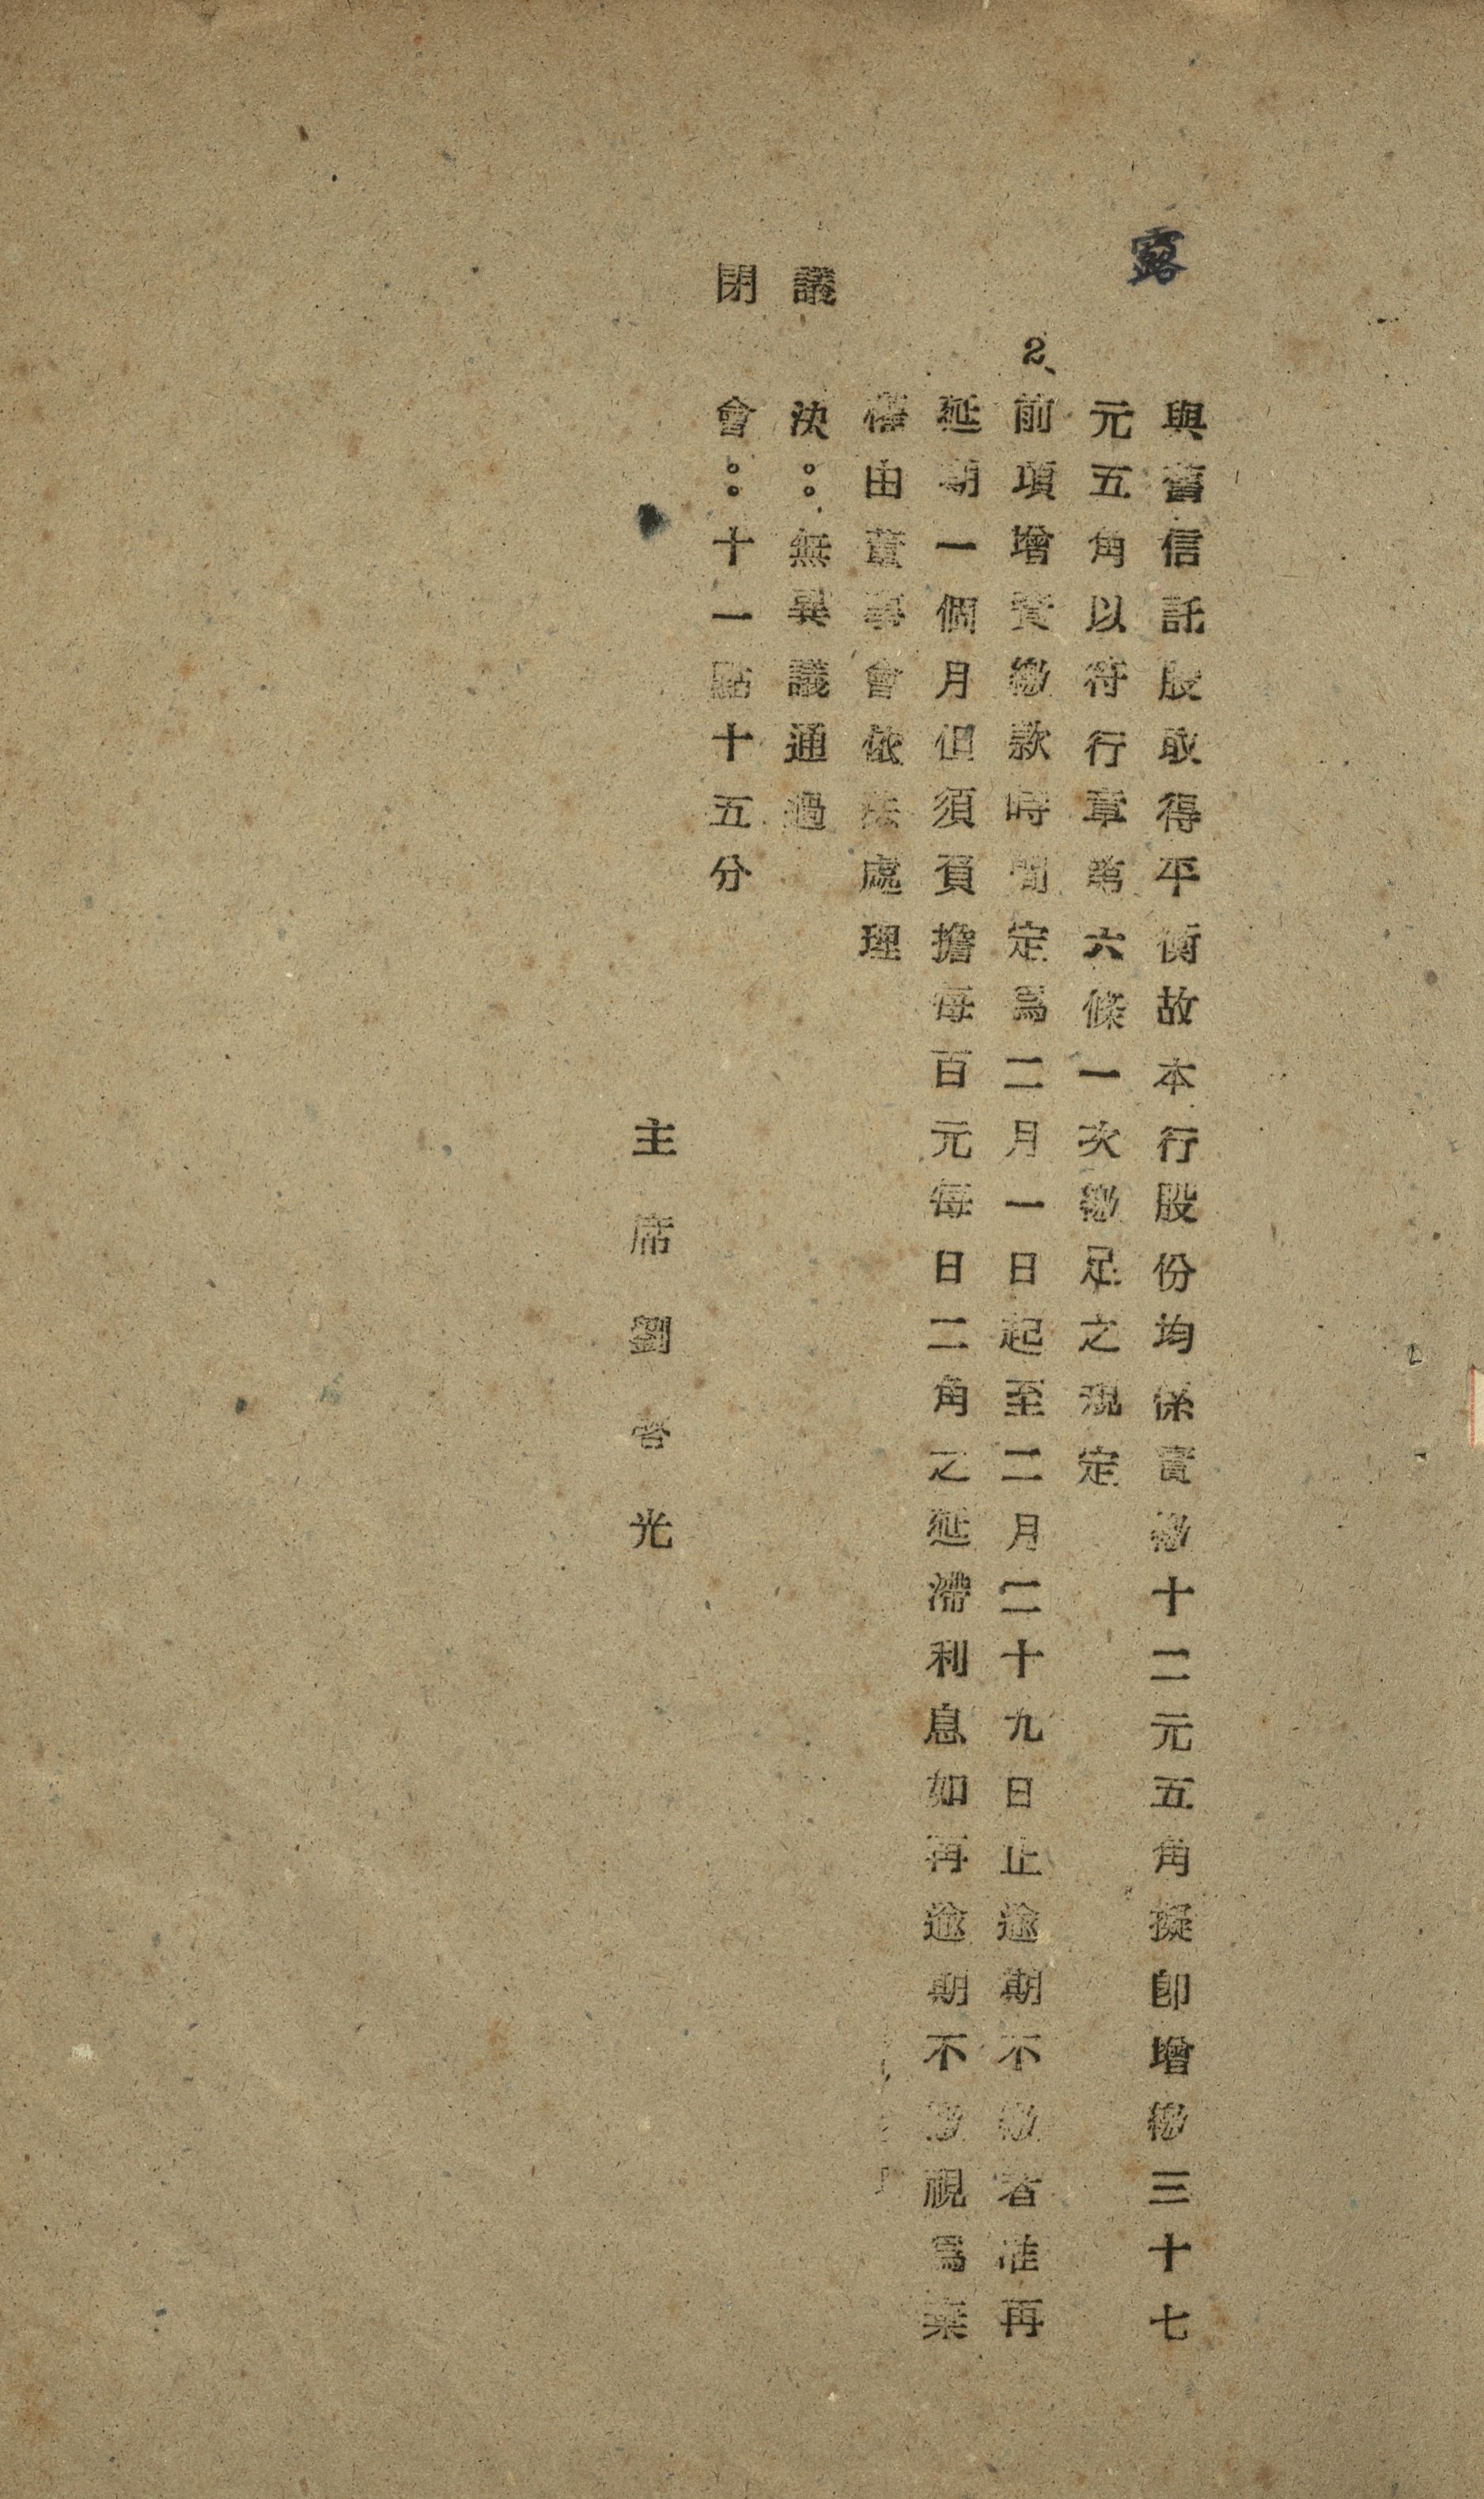 露
與舊信託股取得平衡故本行股份均係實繳十二元五角擬卽增繳三十七
元五角以符行章第六條一次繳足之規定
2、前項增資繳款時間定爲二月一日起至二月二十九日止逾期不繳者准再
延期一個月但須負擔每百元每日二角之延滯利息如再逾期不繳視爲棄
權由董事會依法處理
議決：無異議通過
閉會：十一點十五分
主席劉啓光